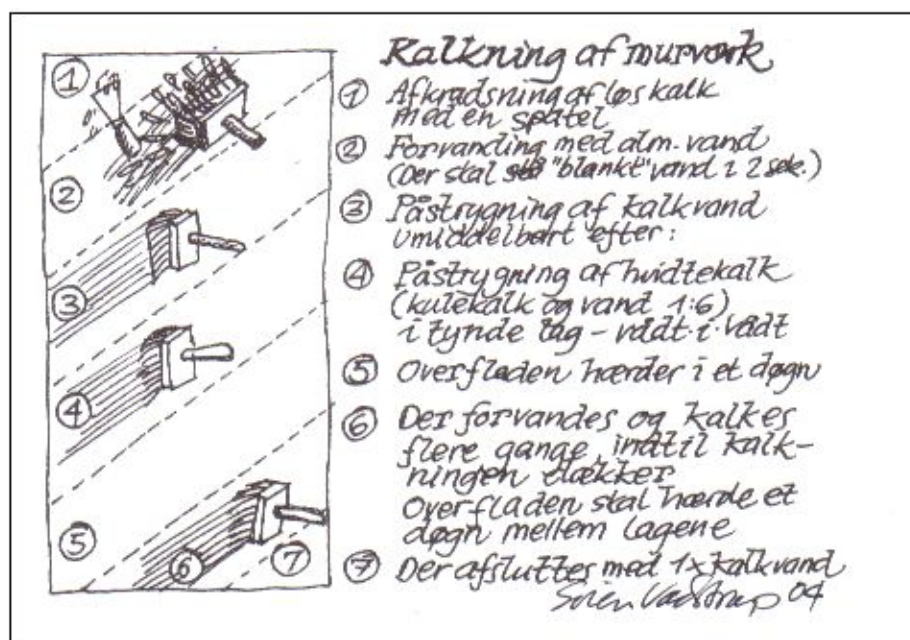 Kalkning af murværk
① Afkradsning af løs kalk
med en spatel
② Forvanding med alm. vand
(Der skal stå "blankt" vand i 2 sek.)
③ Påstrygning af kalkvand
umiddelbart efter:
④ Påstrygning af hvidtekalk
(kulekalk og vand 1:6)
i tynde lag – vådt-i-vådt
⑤ Overfladen hærder i et døgn
⑥ Der forvandes og kalkes
flere gange, indtil kalk-
ningen dækker
Overfladen skal hærde et
døgn mellem lagene
⑦ Der afsluttes med 1x kalkvand
Søren Vadstrup 04
①
②
③
④
⑤
⑥ ⑦